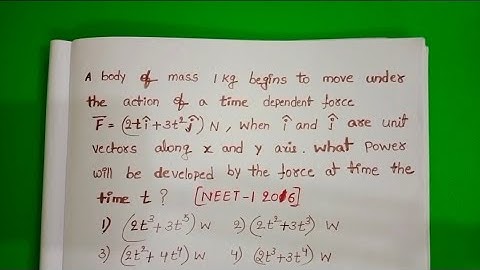 A body of mass 1 kg begins to move under
the action of a time dependent force
F̅ = (2t î + 3t² ĵ) N, when î and ĵ are unit
vectors along x and y axis. what power
will be developed by the force at time the
time t ? [NEET-I 2016]
1) (2t³ + 3t⁵) W 2) (2t² + 3t³) W
3) (2t² + 4t⁴) W 4) (2t³ + 3t⁴) W